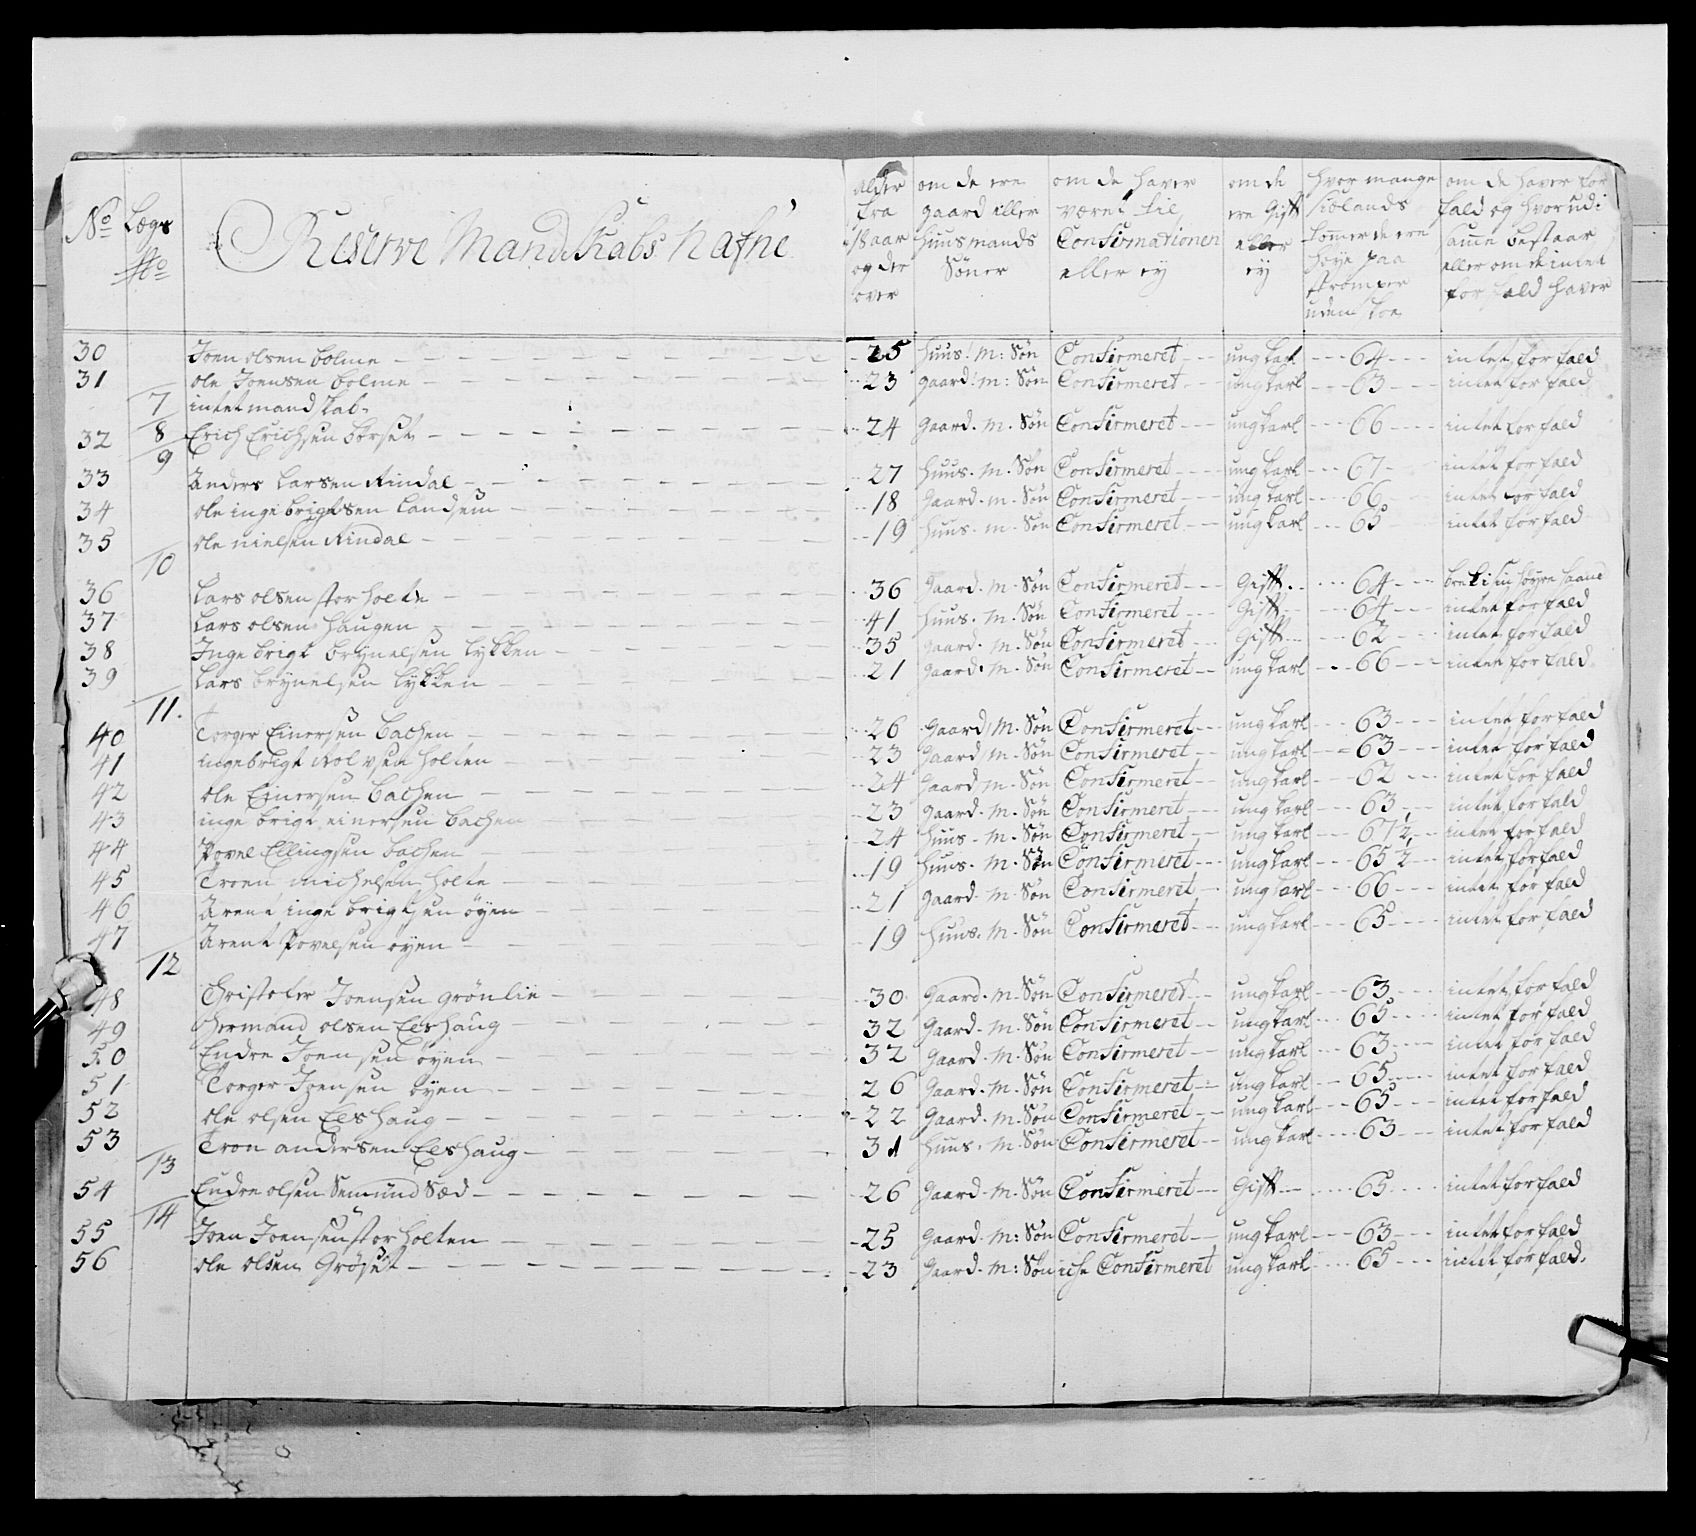 No Lægs No Reserve Mandskabs Nafne
alder fra 18 aar og der over
om de ere gaard eller huusmands Søner
om de haver været til Confirmationen eller ey
om de ere Gift eller ey
hvor mange siolands tommer de ere høye paa strømper uden skoe
om de haver for fald og hvorudi samme bestaar eller om de intet for fald haver
30 Joen olsen bolme 25 huus: M: Søn Confirmeret ung karl 64 intet forfald
31 ole Joensen bolme 23 gaard: M: Søn Confirmeret ung karl 63 intet forfald
7 intet mandskab
32 8 Erich Erichsen børset 24 Gaard. M. Søn Confirmeret ung karl 66 intet forfald
9
33 Anders Larsen Rindal 27 huus. M. Søn Confirmeret ung karl 67 intet forfald
34 ole ingebrigtsen Landsem 18 Gaard. m. Søn Confirmeret ung karl 66 intet forfald
35 ole nielsen Rindal 19 huus. m. Søn Confirmeret ung karl 65 intet forfald
10
36 Lars olsen storholte 36 Gaard. m. Søn Confirmeret Gift 64 brek i sin høyre haand
37 Lars olsen haugen 41 huus. M. Søn Confirmeret Gift 64 intet forfald
38 Ingebrigt brynelsen lykken 35 gaard. M. Søn Confirmeret Gift 62 intet forfald
39 Lars brynelsen lykken 21 Gaard. M. Søn Confirmeret ung karl 66 intet forfald
11.
40 Torger Einersen bachen 26 Gaard M. Søn Confirmeret ung karl 63 intet forfald
41 ingebrigt Rolvsen holten 23 Gaard M. Søn Confirmeret ung karl 63 intet forfald
42 ole Einersen bachen 24 Gaard M. Søn Confirmeret ung karl 62 intet forfald
43 ingebrigt einersen bachen 23 gaard. M. Søn Confirmeret ung karl 63 intet forfald
44 Povel Ellingsen bachen 24 huus. M. Søn Confirmeret ung karl 67½ intet forfald
45 Troen michelsen holte 19 huus. M. Søn Confirmeret ung karl 65½ intet forfald
46 Arent ingebrigtsen øyen 21 gaard. M. Søn Confirmeret ung karl 66 intet forfald
47 Arent Povelsen øyen 19 huus. M. Søn Confirmeret ung karl 65 intet forfald
12
48 Christofer Joensen grønlie 30 Gaard. M. Søn Confirmeret ung karl 63 intet forfald
49 hermand olsen Eeshaug 32 Gaard. M. Søn Confirmeret ung karl 65 intet forfald
50 Endre Joensen øyen 32 Gaard. M. Søn Confirmeret ung karl 63 intet forfald
51 Torger Joensen øyen 26 Gaard. M. Søn Confirmeret ung karl 65 intet forfald
52 ole olsen Eeshaug 22 Gaard. M. Søn Confirmeret ung karl 65 intet forfald
53 Tron andersen Eeshaug 31 huus. M. Søn Confirmeret ung karl 63 intet forfald
13
54 Endre olsen Semundsæd 26 Gaard. M. Søn Confirmeret Gift 65 intet forfald
14
55 Joen Joensen storholten 25 Gaard. M: Søn Confirmeret ung karl 63 intet forfald
56 ole olsen Grøset 23 Gaard. M: Søn iche Confirmeret ung karl 65 intet forfald.